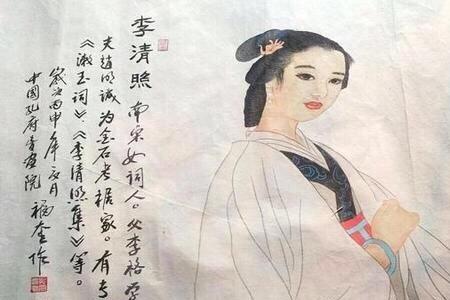 李清照 南宋女词人。父李格
夫赵明诚为金石考据家。有专
《漱玉词》、《李清照集》等。
歲次丙申年月
中国孔府书画院 福奎作